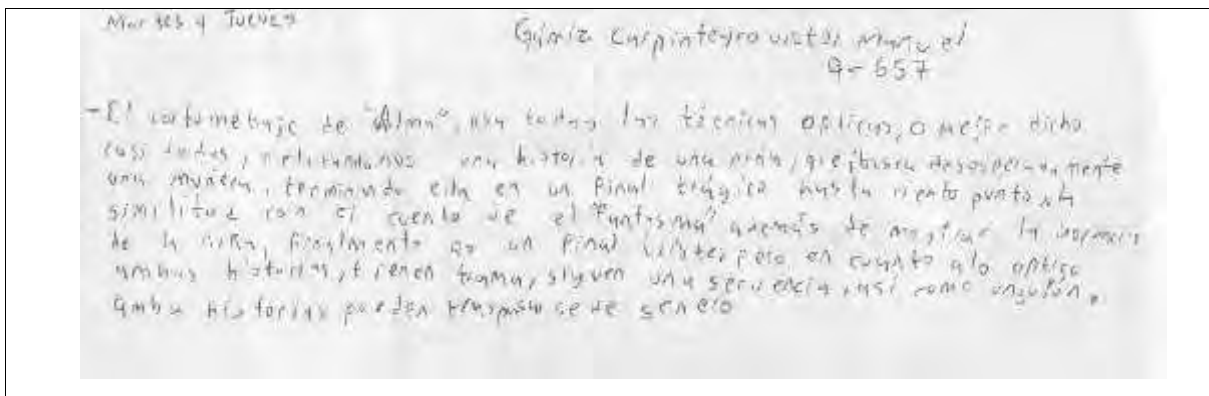 Martes y Jueves
Gámiz Carpinteyro Victor Manuel
9-657
-El cortometraje de "Alma", usa todas las técnicas opticas, o mejor dicho
casi todas, relatandonos una historia de una niña, que busca desesperadamente
una muñeca, terminando ella en un final trágico hasta ciento punto
similitud con el cuento de el "Fantasma" además de mostrar la inocencia
de la niña, finalmente es un final triste, pero en cuanto a lo optico
ambas historias, tienen trama, siguen una secuencia, así como
ambas historias pueden de genero